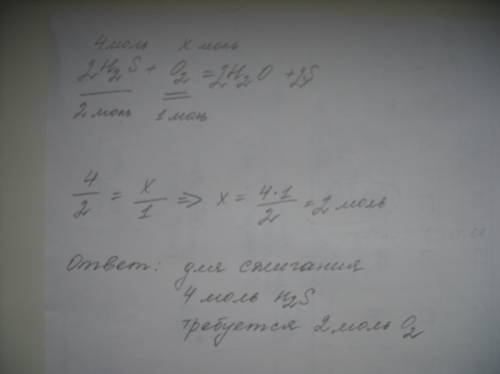 4 моль x моль
2H₂S + O₂ = 2H₂O + 2S
2 моль 1 моль
4/2 = x/1 => x = 4·1/2 = 2 моль
Ответ: для сжигания
4 моль H₂S
требуется 2 моль O₂